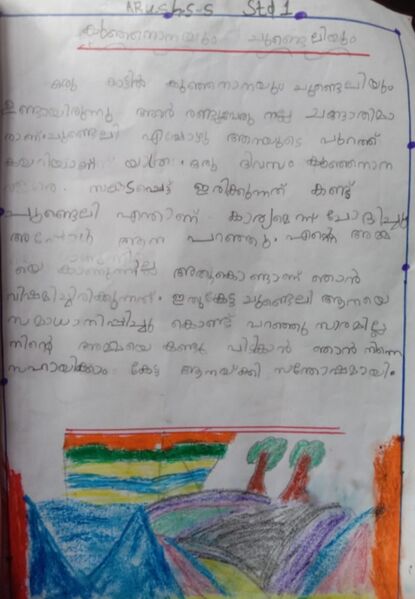 ARushs-s Std 1
കുഞ്ഞനാനയും ചുണ്ടെലിയും
ഒരു കാട്ടിൽ കുഞ്ഞനാനയും ചുണ്ടെലിയും
ഉണ്ടായിരുന്നു അവർ രണ്ടുപേരും നല്ല ചങ്ങാതിമാ
രാണ്. ചുണ്ടെലി എപ്പോഴും ആനയുടെ പുറത്ത്
കയറിയാണ് യാത്ര. ഒരു ദിവസം കുഞ്ഞനാന
വളരെ. സങ്കടപ്പെട്ട് ഇരിക്കുന്നത് കണ്ട്
ചുണ്ടെലി എന്താണ്. കാര്യമെന്ന് ചോദിച്ചു
അപ്പോൾ ആന പറഞ്ഞു. എന്റെ അമ്മ
യെ കാണുന്നില്ല അതുകൊണ്ടാണ് ഞാൻ
വിഷമിച്ചിരിക്കുന്നത്. ഇതുകേട്ട ചുണ്ടെലി ആനയെ
സമാധാനിപ്പിച്ചു കൊണ്ട് പറഞ്ഞു സാരമില്ല
നിന്റെ അമ്മയെ കണ്ടു പിടിക്കാൻ ഞാൻ നിന്നെ
സഹായിക്കാം. കേട്ട ആനയ്ക്ക് സന്തോഷമായി.